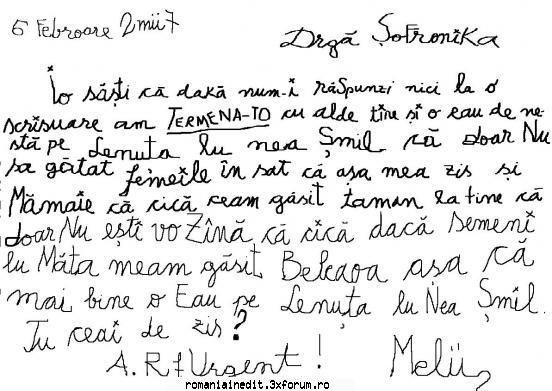 5 Febroare 2mii7
Drgă Șofronika
Io săști că dakă num-i răSpunzi nici la o
scrisuare am TERMENA-TO cu alde tine și o eau de ne-
stă pe Lenuța lu nea Șmil că doar Nu
sa gătat femeile în sat că așa mea zis și
Mămaie că cică ceam găsit taman la tine că
doar Nu ești vo Zînă că cică dacă semeni
lu Măta meam găsit Beleaoa așa că
mai bine o Eau pe Lenuța lu Nea Șmil.
Tu ceai de zis?
A.R f Urgent!
romaniainedit.3xforum.ro